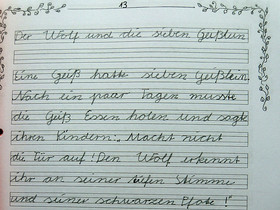 13
Der Wolf und die sieben Geißlein
Eine Geiß hatte sieben Geißlein.
Nach ein paar Tagen musste
die Geiß Essen holen und sagte
ihren Kindern: „Macht nicht
die Tür auf! Den Wolf erkennt
ihr an seiner tiefen Stimme
und seiner schwarzen Pfote!"